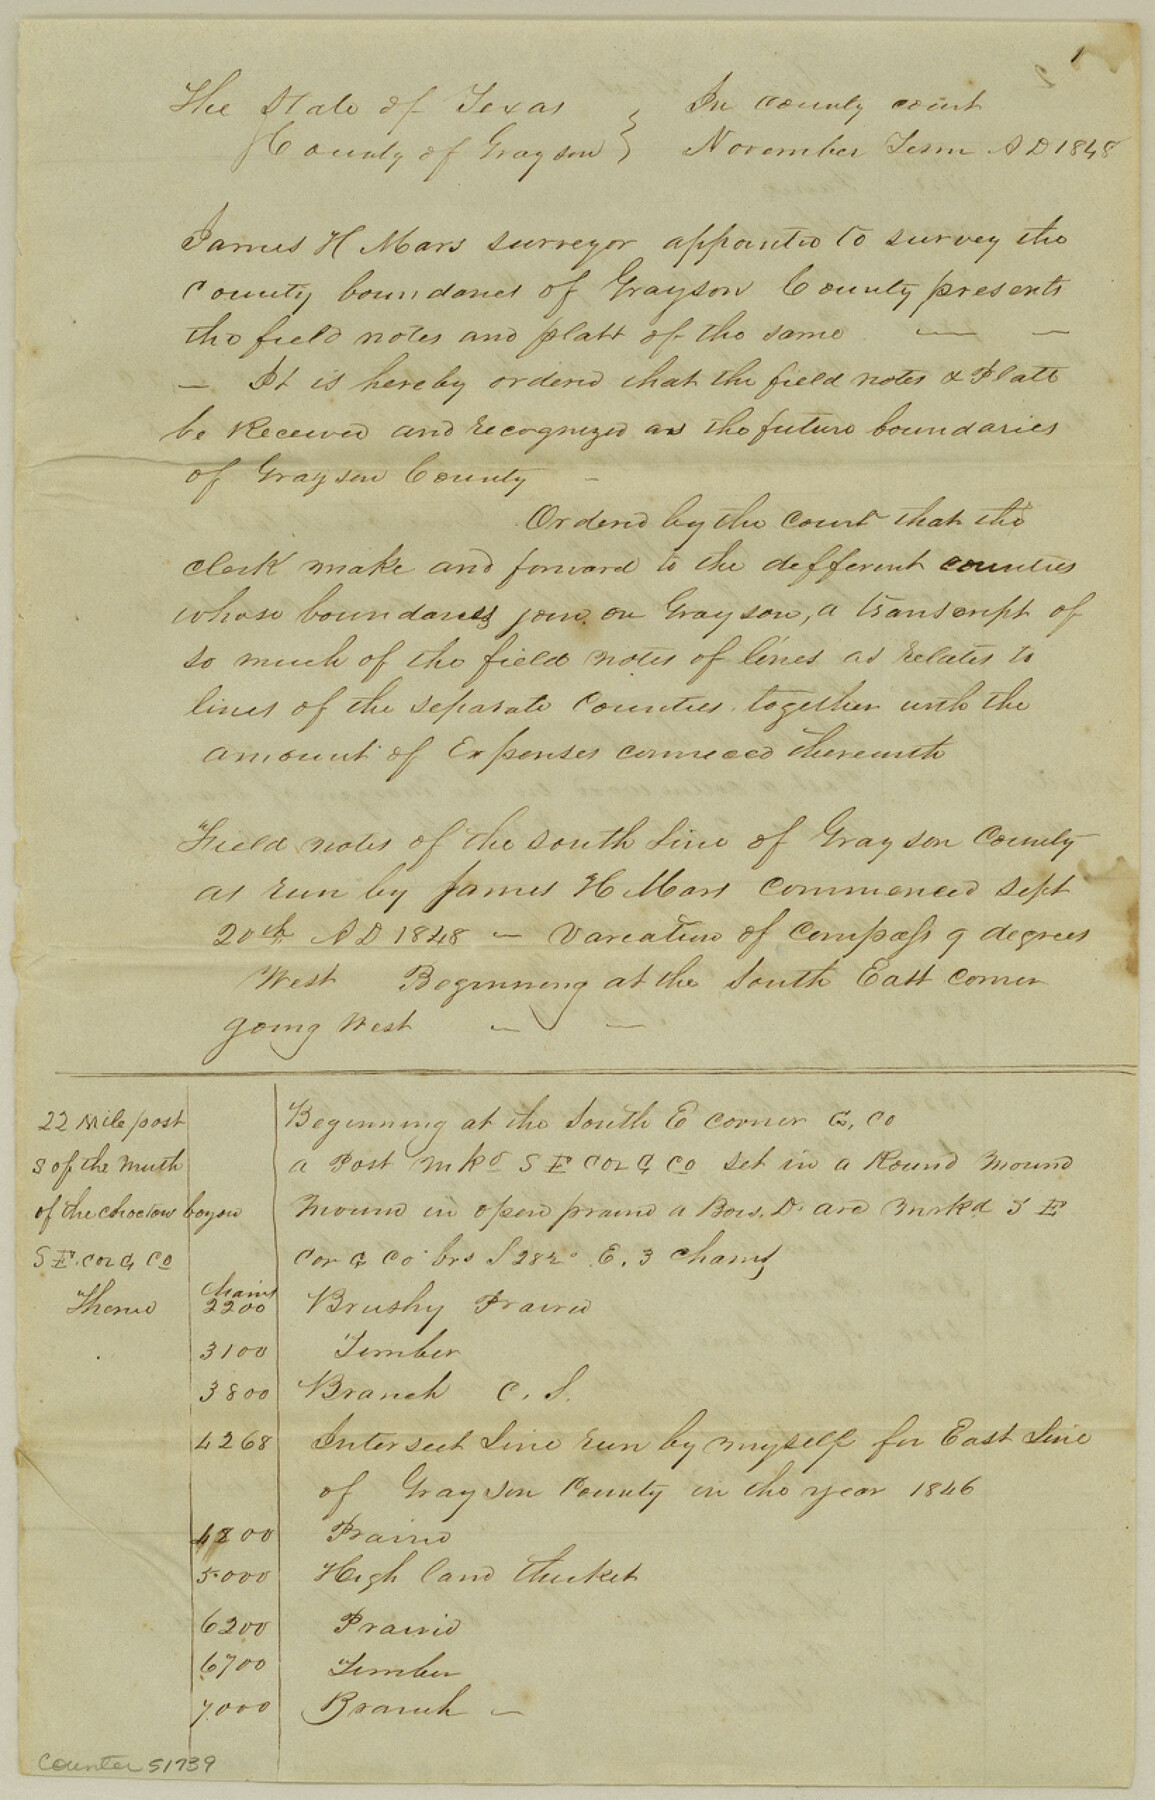 1
The State of Texas } In county court
County of Grayson } November Term AD 1848
James H Mars surveyor appointed to survey the
County boundaries of Grayson County presents
the field notes and platt of the same — —
— It is hereby ordered that the field notes & Platt
be Received and recognized as the future boundaries
of Grayson County —
Ordered by the Court that the
clerk make and forward to the defferent counties
whose boundaries join on Grayson, a transcript of
so much of the field notes of lines as relates to
lines of the separate Counties together with the
amount of Expenses connected therewith
"Field notes of the South Line of Grayson County
as run by James H Mars commenced Sept
20th AD 1848 — Variation of Compass 9 degrees
West Beginning at the South East corner
going West — —
22 Mile post Beginning at the South E corner G. Co
S of the Muth a Post mkd S E Cor G Co set in a Round mound
of the choctaw bayou Mound in open prairie a Bois. D. arc mrkd S E
S E. Cor G Co Cor G Co brs S 28 E. 3 chains
Thence chains
2200 Brushy Prairie
3100 Timber
3800 Branch C. S.
4268 Intersect Line run by myself for East Line
of Grayson County in the year 1846
4800 Prairie
5000 High land thicket
6200 Prairie
6700 Timber
7000 Branch —
Counter 51739